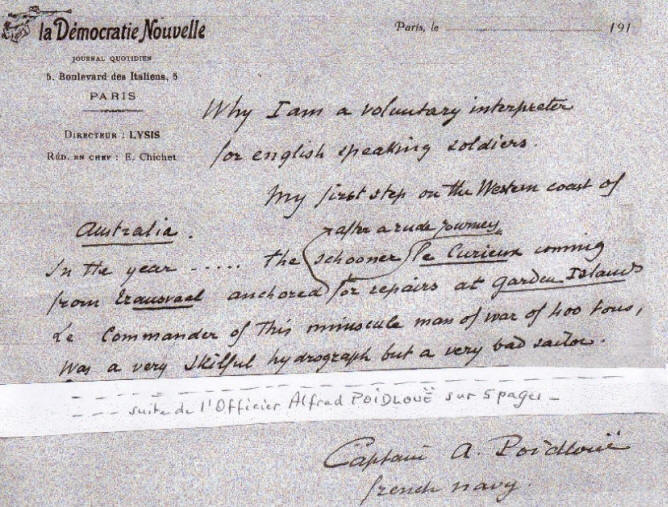 la Démocratie Nouvelle
JOURNAL QUOTIDIEN
5, Boulevard des Italiens, 5
PARIS
DIRECTEUR : LYSIS
RÉD. EN CHEF : E. Chichet
Paris, le 191
Why I am a voluntary interpreter
for english speaking soldiers.
My first step on the Western coast of
Australia.
after a rude journey
In the year ..... the schooner Le Curieux coming
from anchored for repairs at Garden Islands
Le Commander of this minuscule man of war of 400 tons,
was a very skilful hydrograph but a very bad sailor.
suite de l'Officier Alfred POIDLOUË sur 5 pages
Captain A. Poidlouë
french navy.